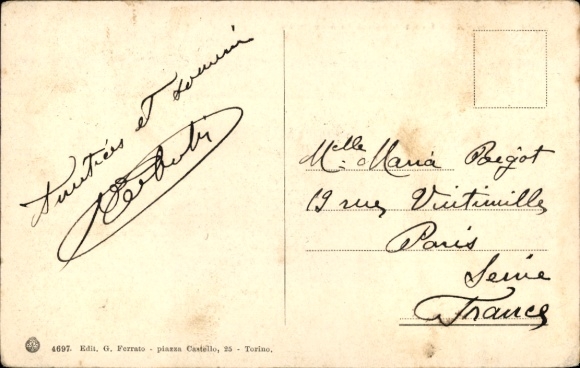 Amitiés et souvenir
Mlle Maria Peigot
19 rue Vintimille
Paris
Seine
France
4697. Edit. G. Ferrato - piazza Castello, 25 - Torino.